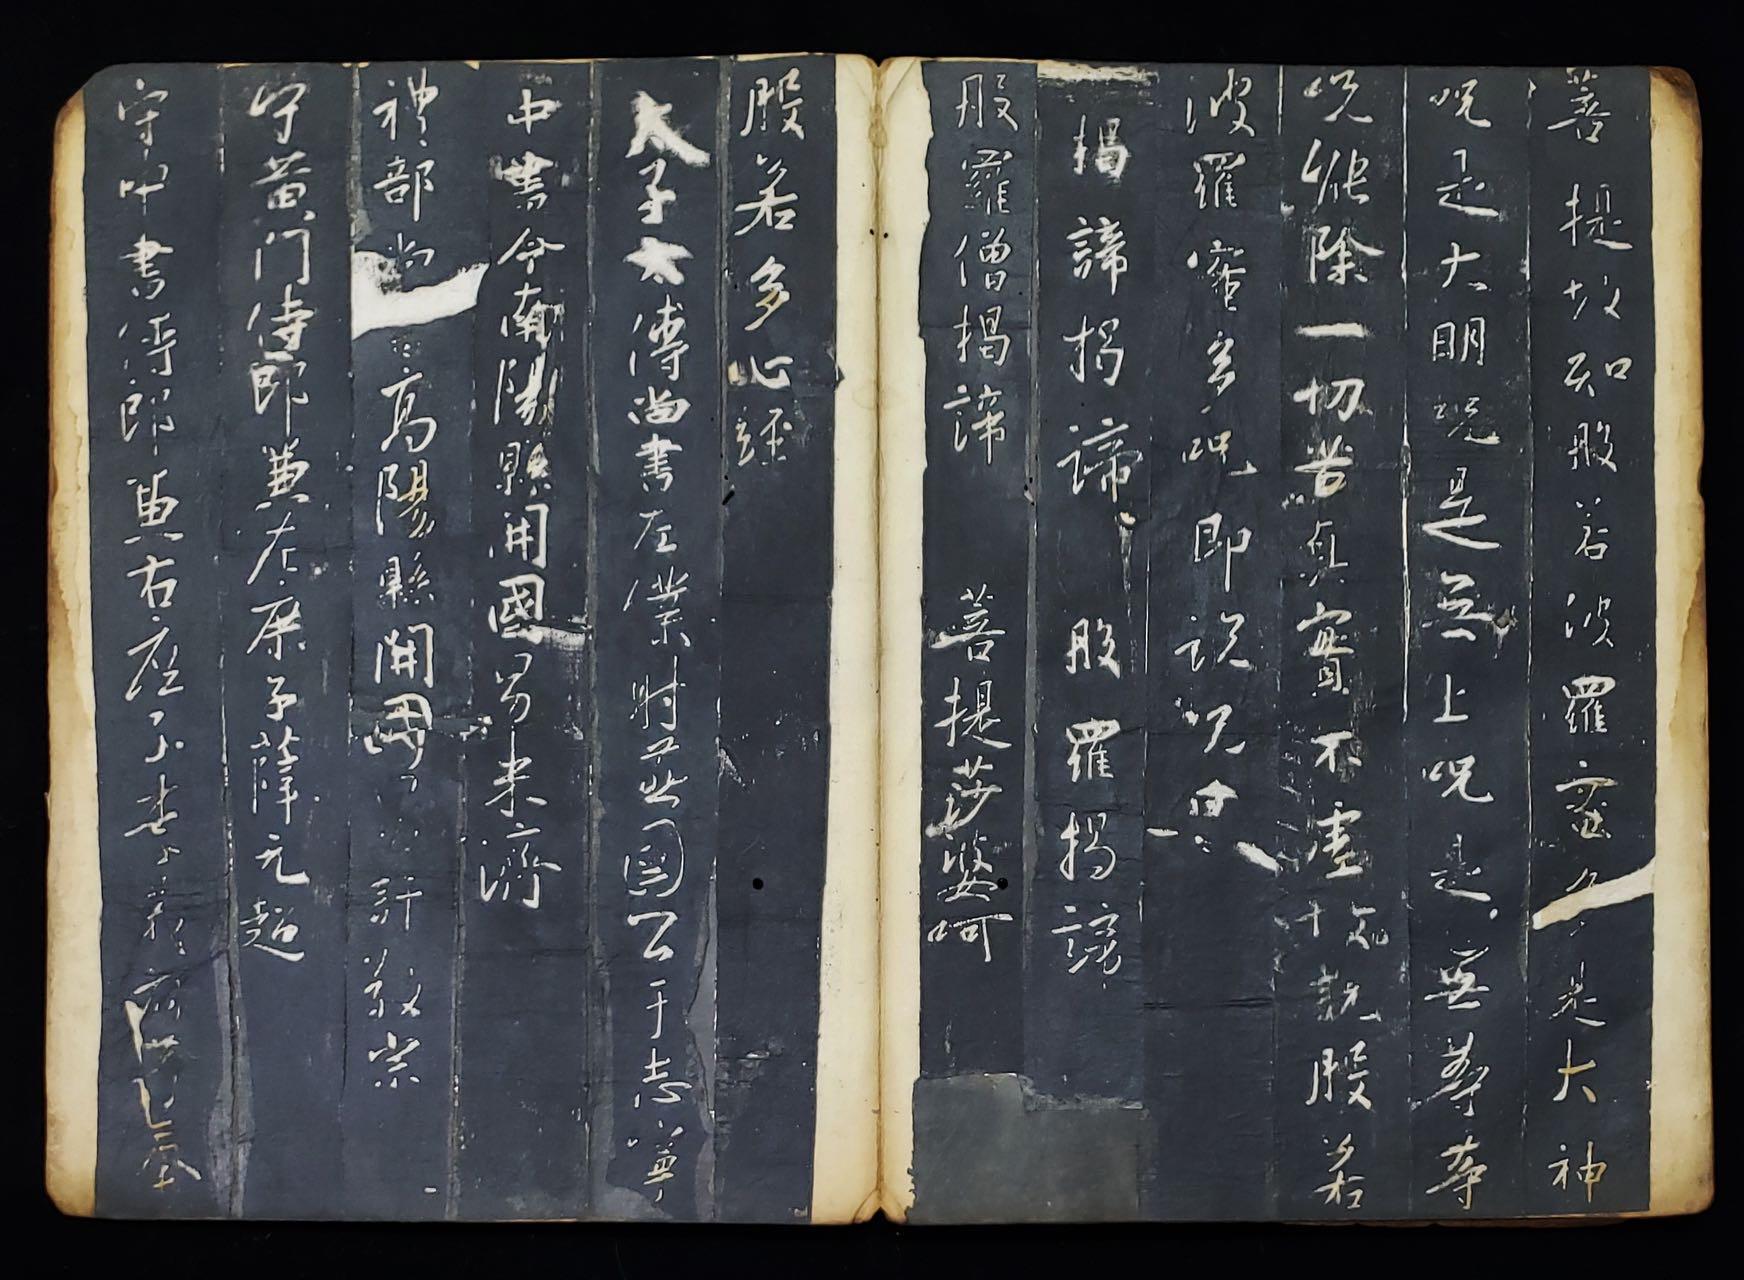 菩提故知般若波羅蜜多是大神
呪是大明呪是無上呪是無等等
呪能除一切苦真實不虛故説般若
波羅蜜多呪即説呪曰
揭諦揭諦 般羅揭諦
般羅僧揭諦 菩提莎婆呵
般若多心經
太子太傅尚書左僕射燕國公于志寧
中書令南陽縣開國男来濟
禮部尚高陽縣開國許敬宗
守黃門侍郎兼左庶子薛元超
守中書侍郎兼右庶子李義府